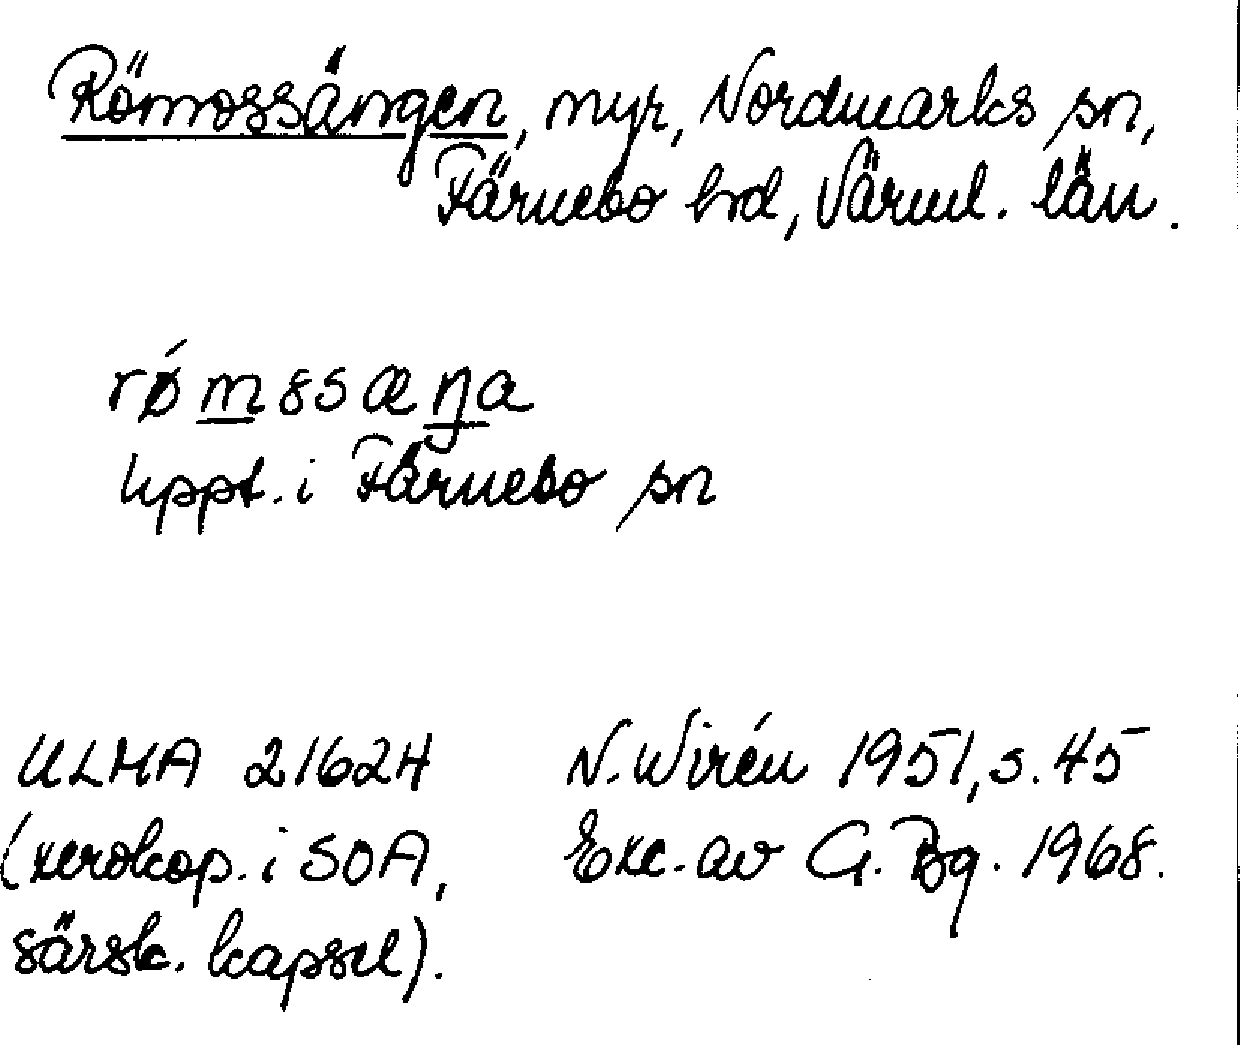 Römossängen, myr, Nordmarks sn,
Färnebo hrd, Värml. län.
rǿmssæŋa
Uppt. i Färnebo sn
ULMA 21624 N. Wirén 1951, s. 45
(xerokop. i SOA, Exc. av G. Bg. 1968.
särsk. kapsel).